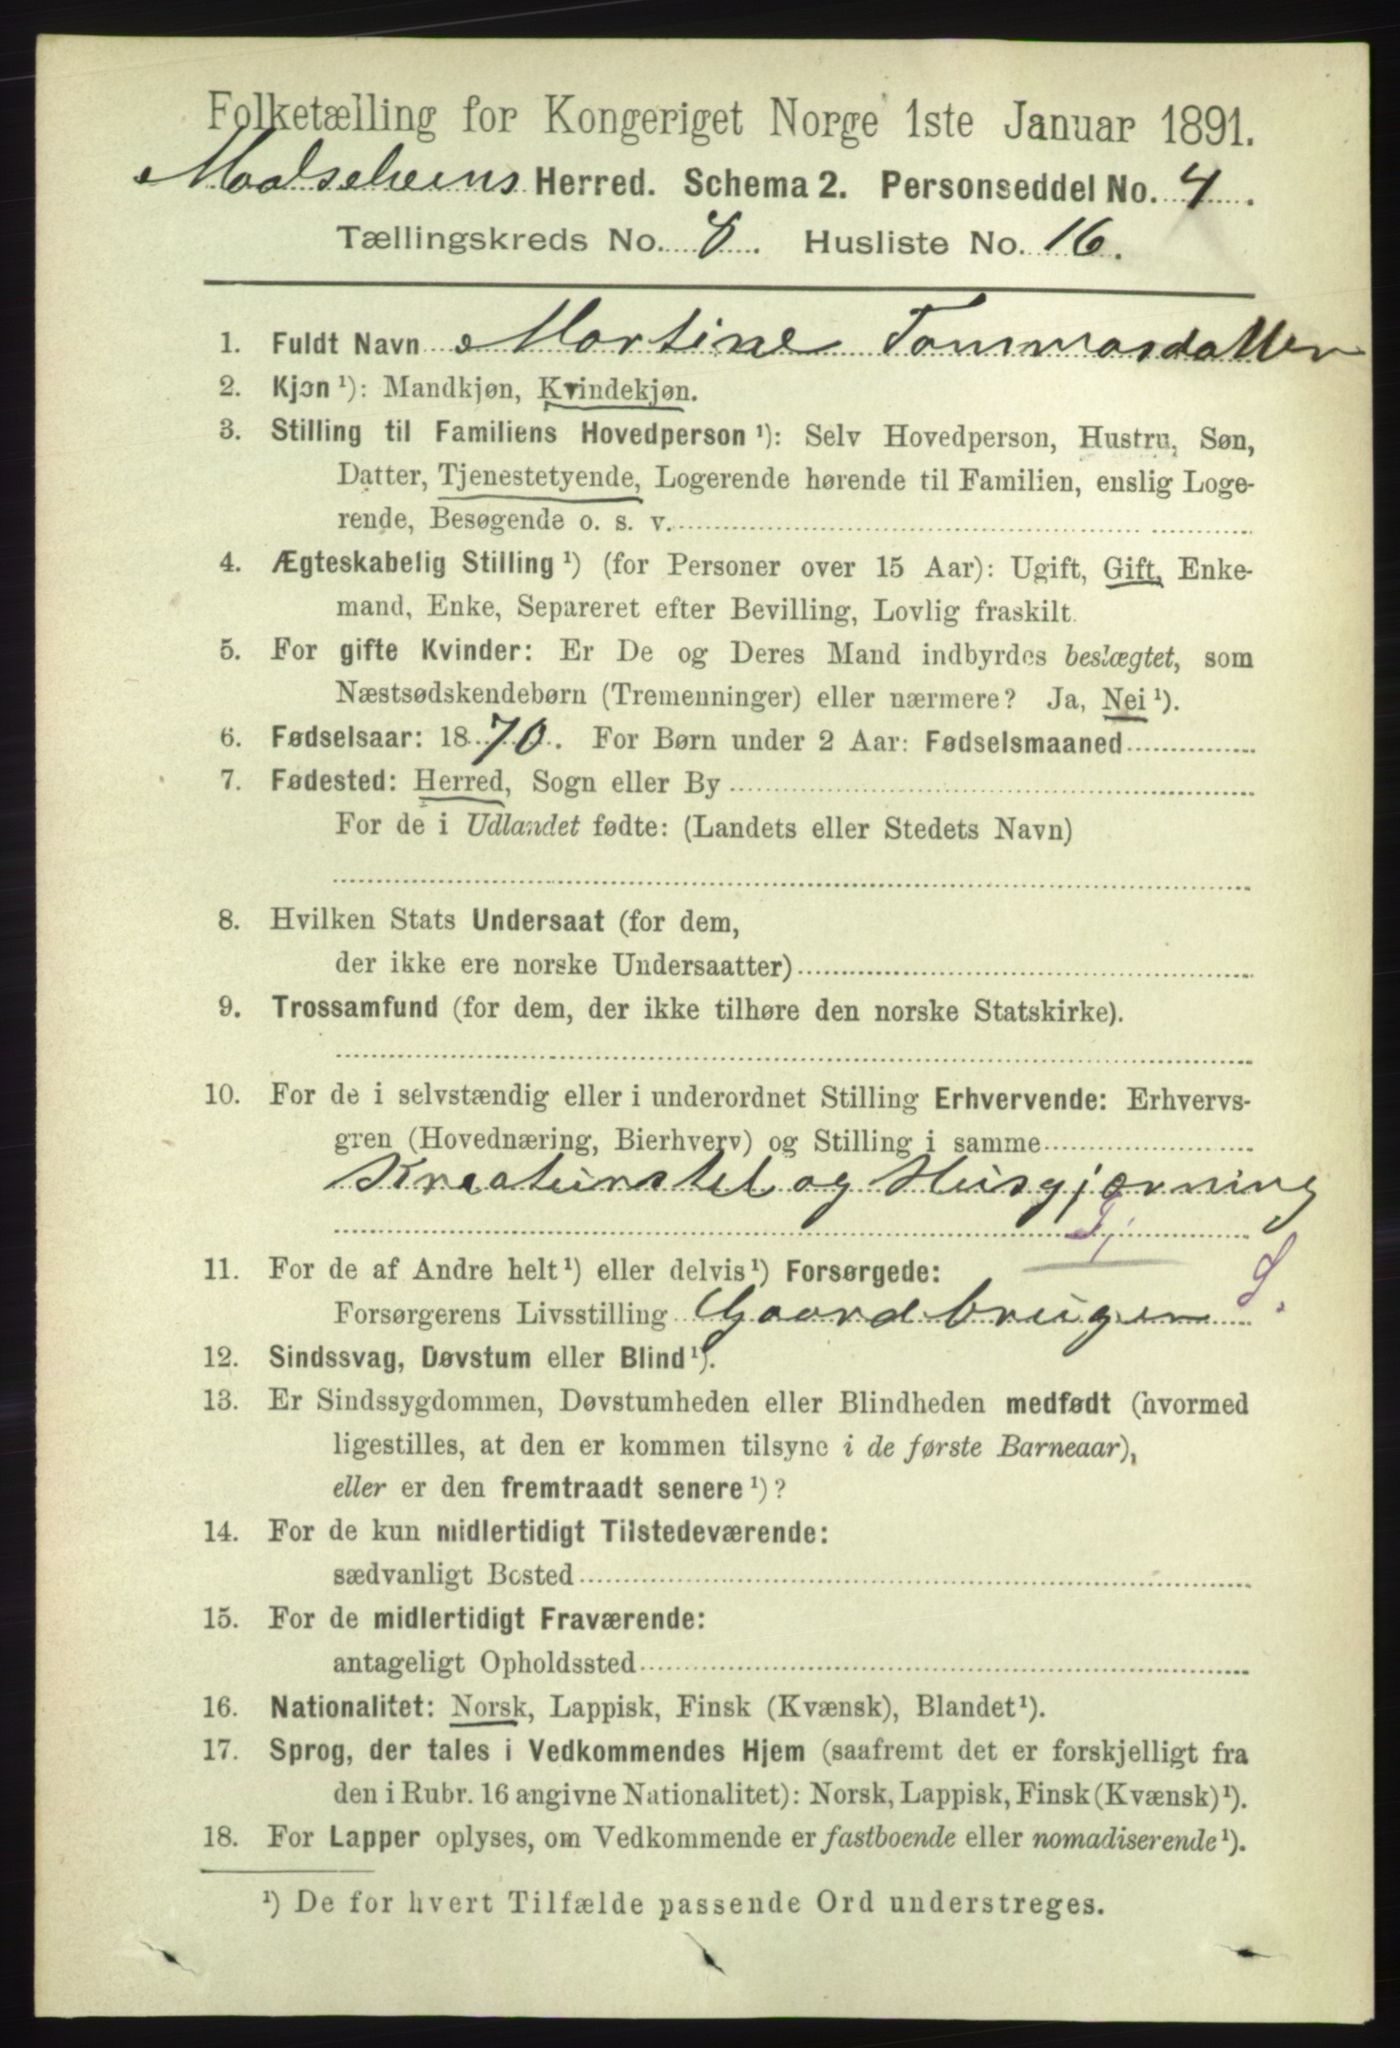 Folketælling for Kongeriget Norge 1ste Januar 1891.
Maalselvens Herred. Schema 2. Personseddel No. 4.
Tællingskreds No. 8. Husliste No. 16.
1. Fuldt Navn Martine Tommasdatter
2. Kjøn ¹): Mandkjøn, Kvindekjøn.
3. Stilling til Familiens Hovedperson ¹): Selv Hovedperson, Hustru, Søn,
Datter, Tjenestetyende, Logerende hørende til Familien, enslig Loge-
rende, Besøgende o. s. v.
4. Ægteskabelig Stilling ¹) (for Personer over 15 Aar): Ugift, Gift, Enke-
mand, Enke, Separeret efter Bevilling, Lovlig fraskilt.
5. For gifte Kvinder: Er De og Deres Mand indbyrdes beslægtet, som
Næstsødskendebørn (Tremenninger) eller nærmere? Ja, Nei ¹).
6. Fødselsaar: 1870. For Børn under 2 Aar: Fødselsmaaned
7. Fødested: Herred, Sogn eller By
For de i Udlandet fødte: (Landets eller Stedets Navn)
8. Hvilken Stats Undersaat (for dem,
der ikke ere norske Undersaatter)
9. Trossamfund (for dem, der ikke tilhøre den norske Statskirke).
10. For de i selvstændig eller i underordnet Stilling Erhvervende: Erhvervs-
gren (Hovednæring, Bierhverv) og Stilling i samme
Kreaturstel og Husgjærning
Tj
11. For de af Andre helt ¹) eller delvis ¹) Forsørgede:
Forsørgerens Livsstilling Gaardbruger S.
12. Sindssvag, Døvstum eller Blind ¹).
13. Er Sindssygdommen, Døvstumheden eller Blindheden medfødt (hvormed
ligestilles, at den er kommen tilsyne i de første Barneaar),
eller er den fremtraadt senere ¹)?
14. For de kun midlertidigt Tilstedeværende:
sædvanligt Bosted
15. For de midlertidigt Fraværende:
antageligt Opholdssted
16. Nationalitet: Norsk, Lappisk, Finsk (Kvænsk), Blandet ¹).
17. Sprog, der tales i Vedkommendes Hjem (saafremt det er forskjelligt fra
den i Rubr. 16 angivne Nationalitet): Norsk, Lappisk, Finsk (Kvænsk) ¹).
18. For Lapper oplyses, om Vedkommende er fastboende eller nomadiserende ¹).
¹) De for hvert Tilfælde passende Ord understreges.